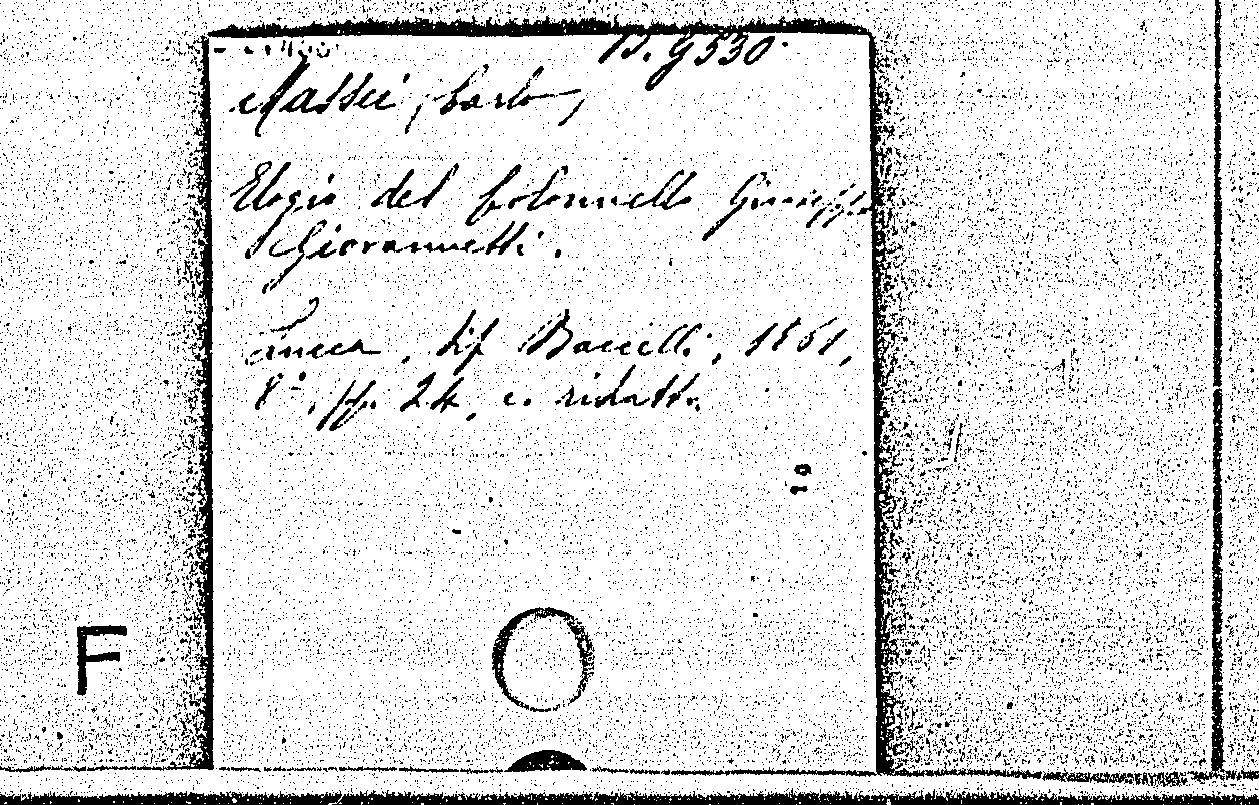 B. G530
Massei, Carlo,
Elogio del Colonnello Giuseppe
Giovannetti.
Lucca, tip. Baccelli, 1861,
8°, pp. 24, c. ritratto.
F